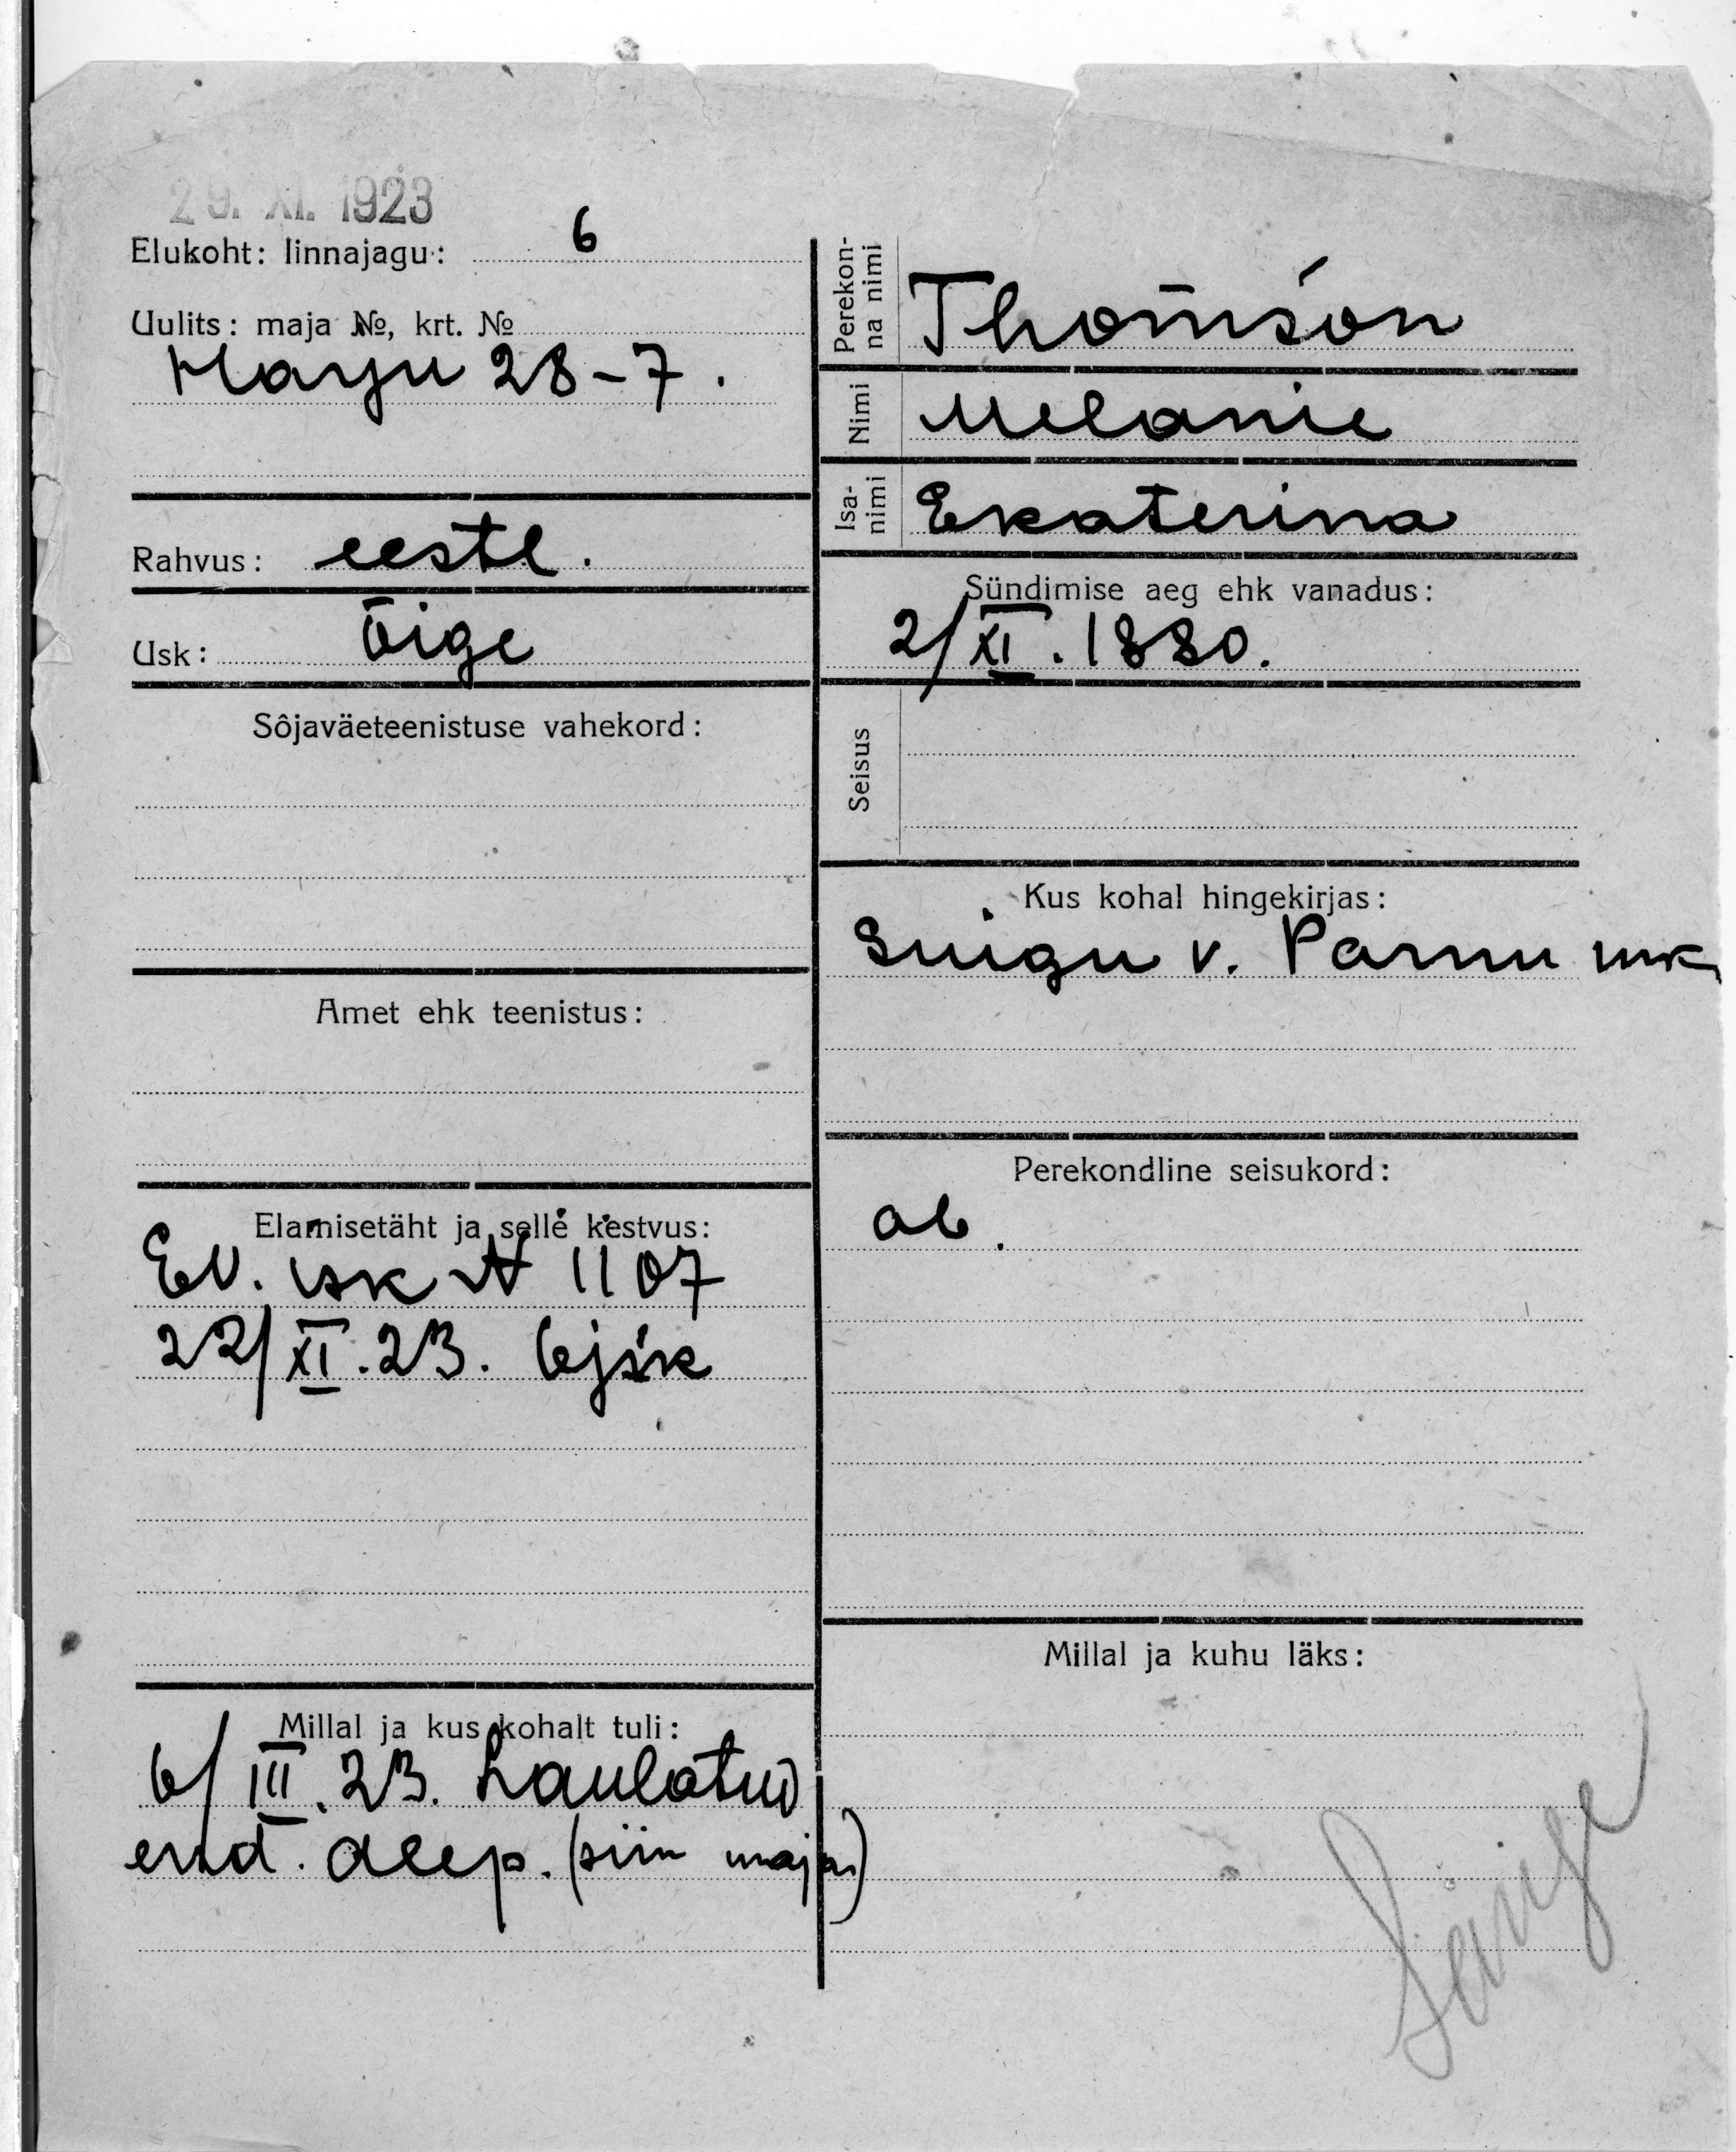 29. XI. 1923
Elukoht: linnajagu: 6
Uulits: maja №, krt. №
Harju 28-7.
Rahvus: eestl.
Usk: õige
Sôjaväeteenistuse vahekord:
Amet ehk teenistus:
Elamisetäht ja selle kestvus:
EV. isk № 1107
22/XI.23. 6jsk
Millal ja kus kohalt tuli:
6/III.23. Laulatud
end. Aleep. (siin majas)
Perekon-
na nimi
Thomson
Nimi
Melanie
Isa-
nimi
Ekaterina
Sündimise aeg ehk vanadus:
2/XI.1880.
Seisus
Kus kohal hingekirjas:
Suigu v. Parnu mk
Perekondline seisukord:
ab.
Millal ja kuhu läks: